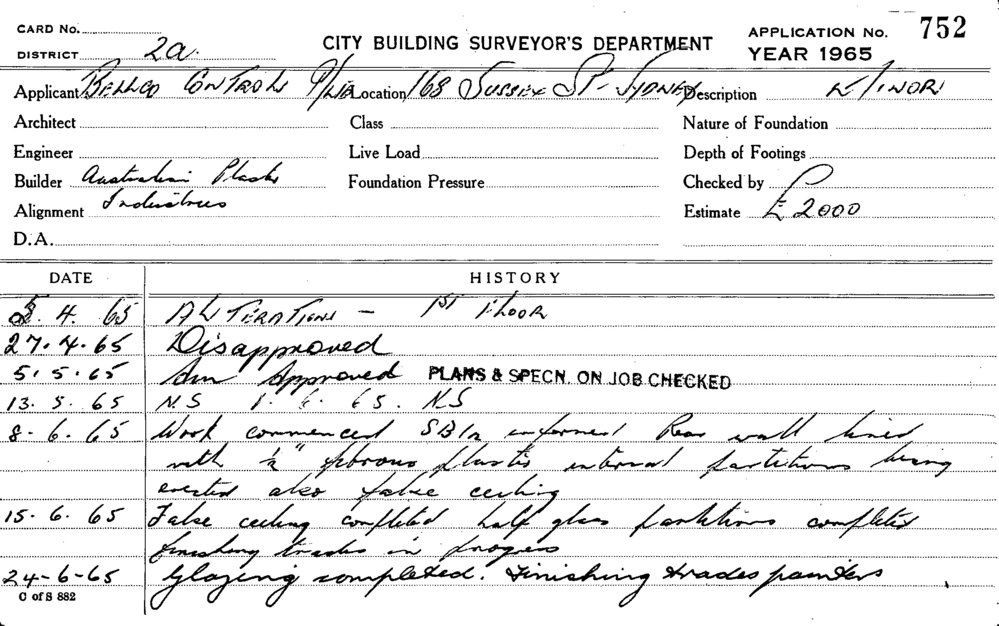 CARD No.
APPLICATION No. 752
DISTRICT 2a
CITY BUILDING SURVEYOR'S DEPARTMENT
YEAR 1965
Applicant Bellco Controls P/Ltd Location 168 Sussex St - Sydney Description Minor
Architect Class Nature of Foundation
Engineer Live Load Depth of Footings
Builder Australian Plaster Foundation Pressure Checked by
Alignment Industries Estimate £2000
D.A.
DATE HISTORY
5. 4. 65 Alterations - 1st Floor
27.4.65 Disapproved
5.5.65 Am Approved PLANS & SPECN. ON JOB CHECKED
13. 5. 65 N.S 1. 6. 65. N.S
8. 6. 65 Work commenced informed Rear wall lined
with ½" fibrous plaster internal partitions being
erected also false ceiling
15. 6. 65 False ceiling completed half glass partitions completed
finishing trades in progress
24-6-65 Glazing completed. Finishing trades painters
C of S 882